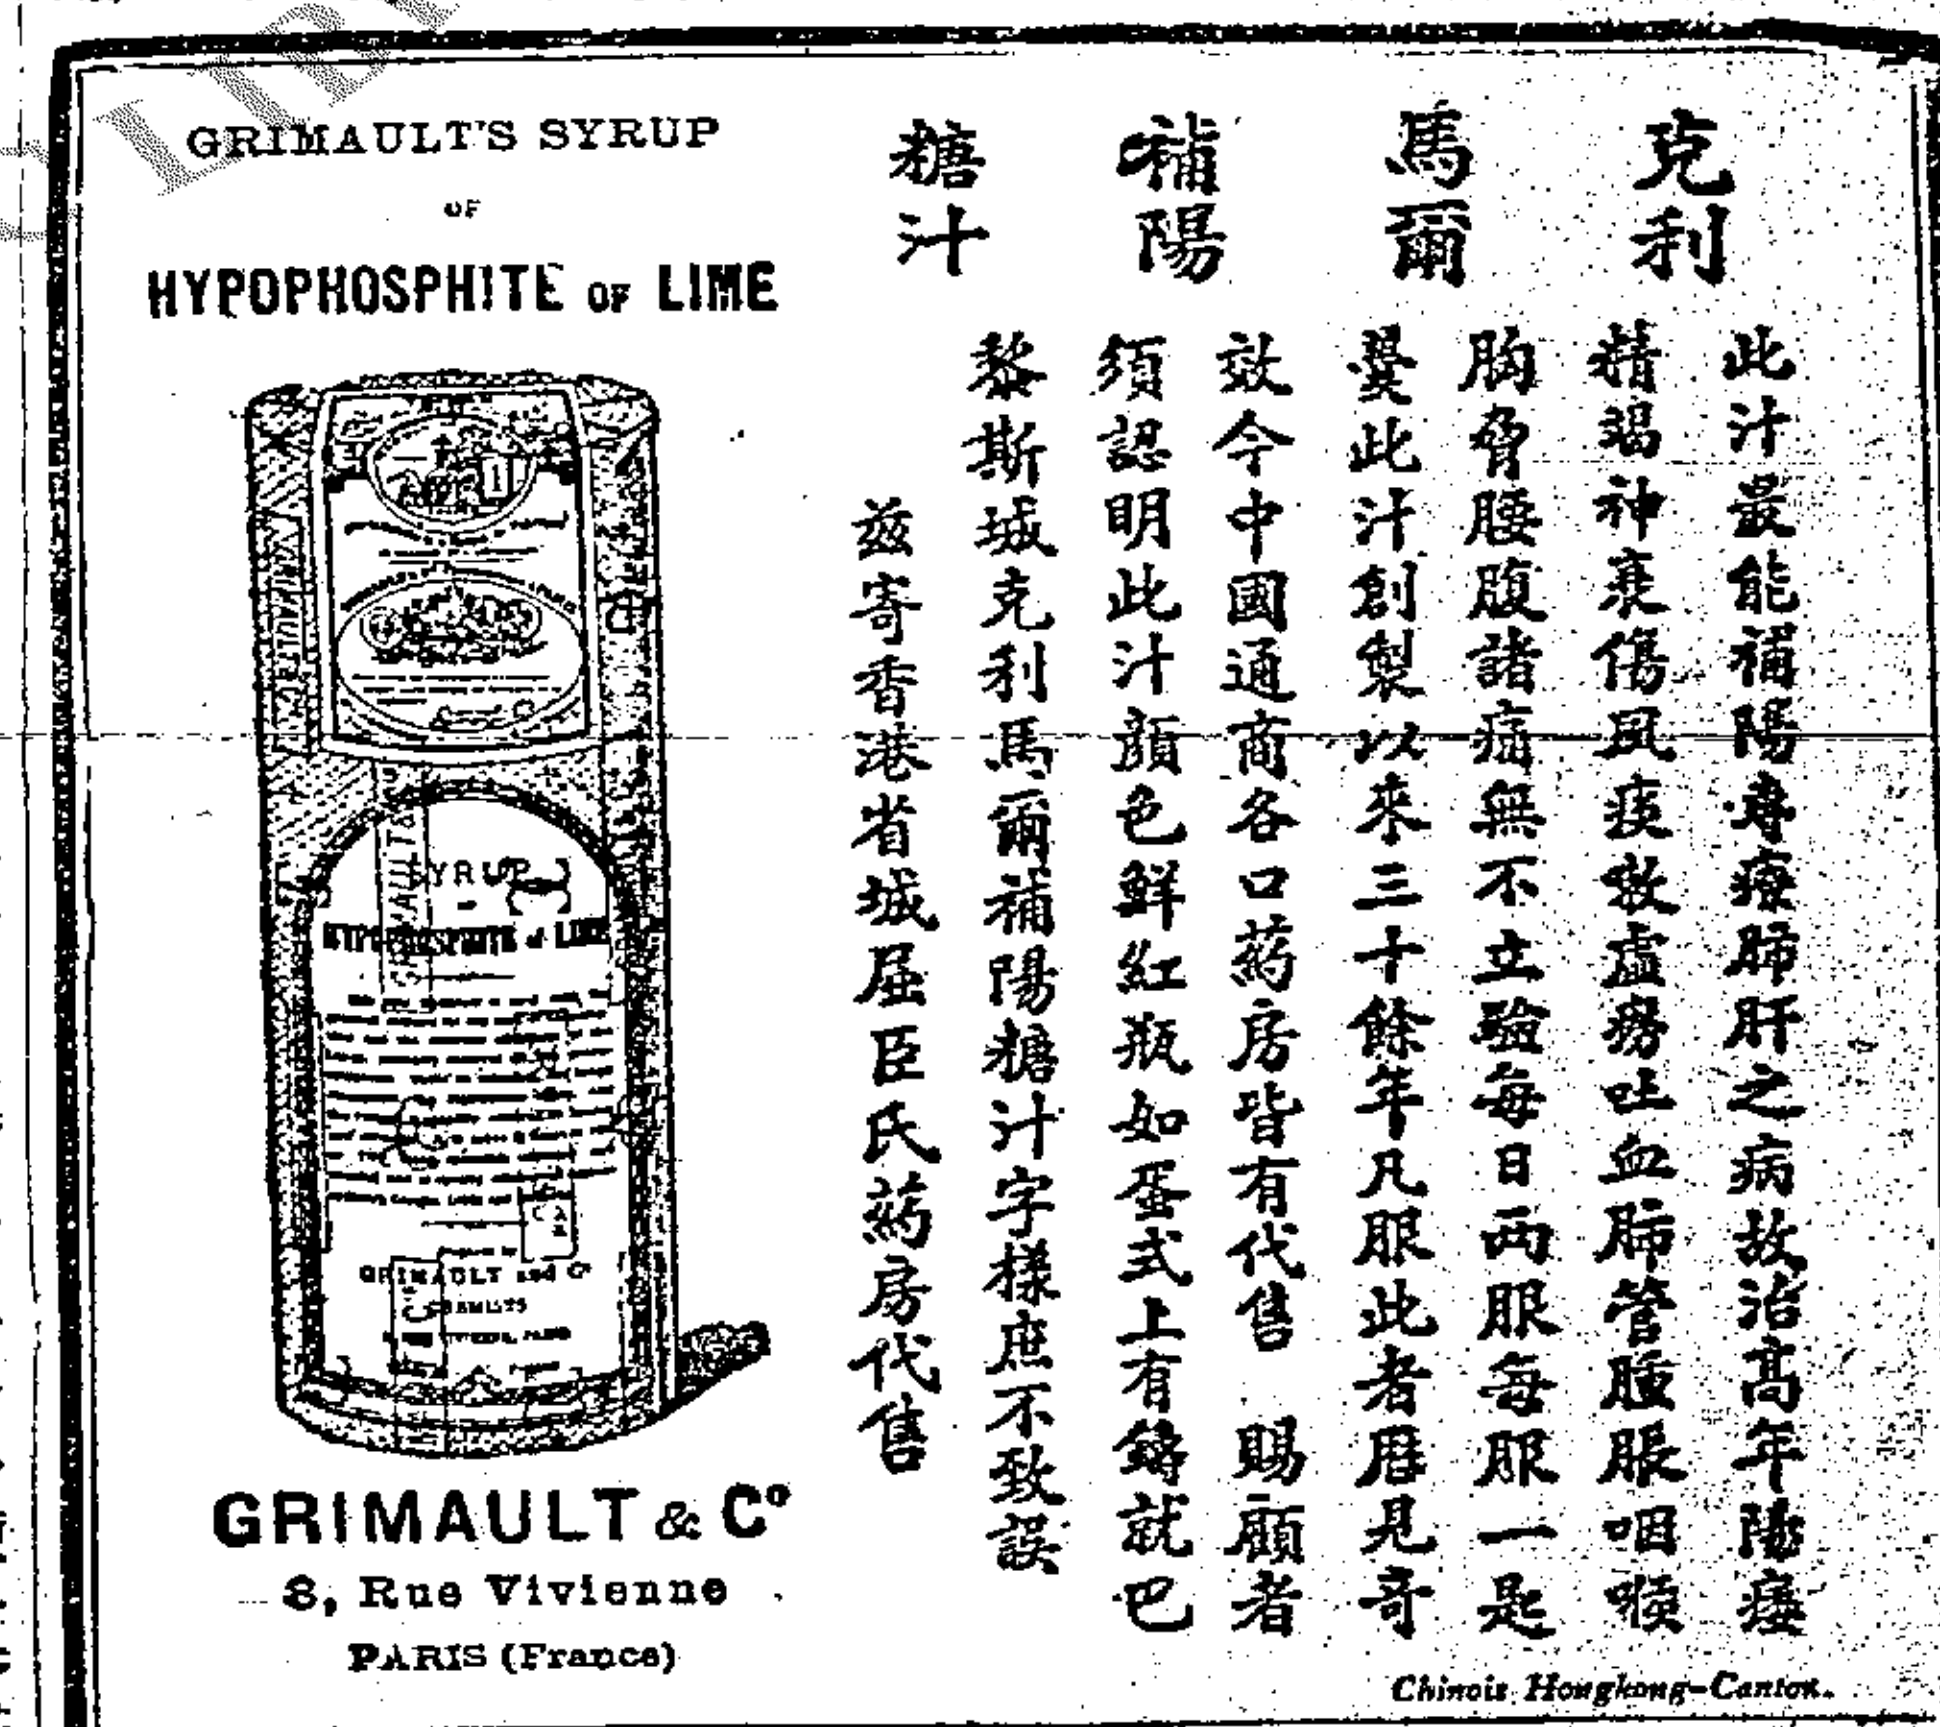 GRIMAULT'S SYRUP
OF
HYPOPHOSPHITE OF LIME
SYRUP
OF
HYPOPHOSPHITE of LIME
GRIMAULT and Co
CHEMISTS
GRIMAULT & Co
8, Rue Vivienne
PARIS (France)
克利
馬爾
補陽
糖汁
此汁最能補陽專療肺肝之病故治高年陽痿
精竭神衰傷風痰欬虛癆吐血肺管腫脹咽喉
胸脅腰腹諸痛無不立驗每日両服每服一匙
爰此汁創製以來三十餘年凡服此者屢見奇
效今中國通商各口药房皆有代售 賜顧者
須認明此汁顏色鮮紅瓶如蛋式上有鑄就巴
黎斯城克利馬爾補陽糖汁字樣庶不致誤
茲寄香港省城屈臣氏药房代售
Chinois Hongkong-Canton.